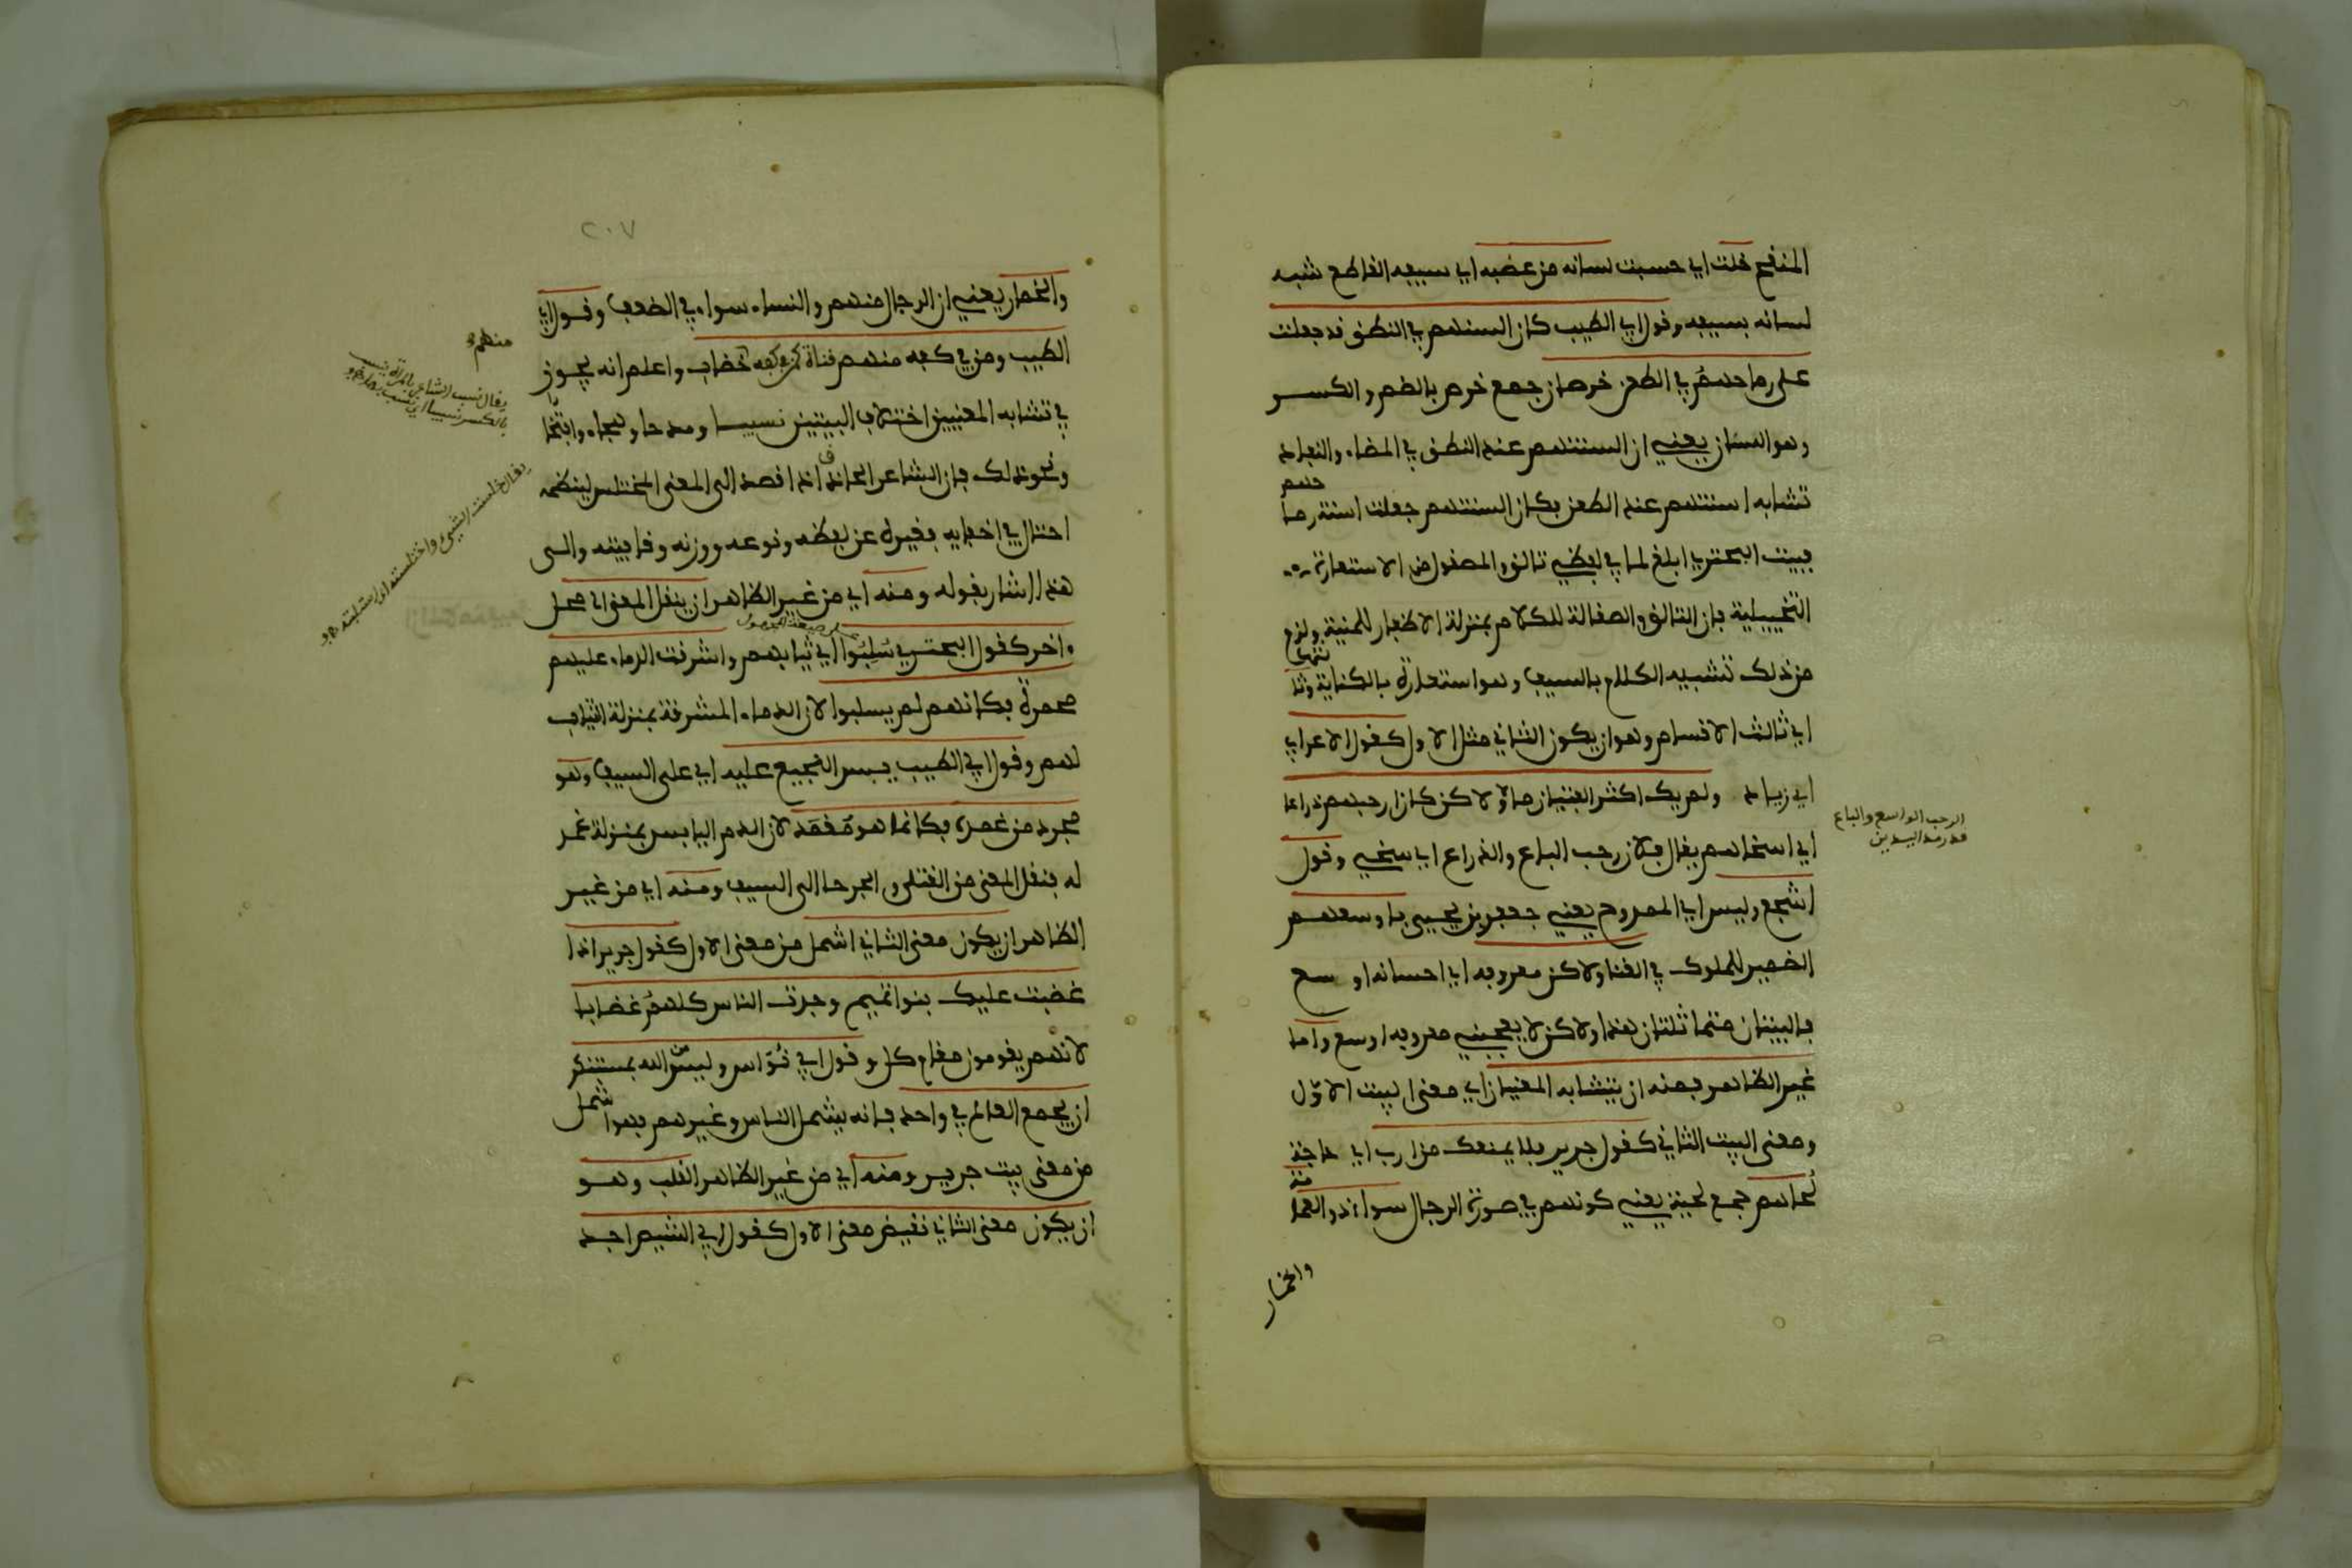 المنفح خلت اي حسبت لسانه من عضبه اي سيفه القاطع شبه
لسانه بسيفه وقول ابي الطيب كان السنهم في النطق قد جعلت
على رماحهم في الطعن خرصان جمع خرص بالضم والكسر
وهو السنان يعني ان السنتهم عند النطق في المضاء والنفاذ
تشابه اسنتهم عند الطعن فكان السنتهم جعلت اسنة رماحهم
فبيت البحتري ابلغ لما في لفظي تالق والمصقول من الاستعارة
التخييلية فان التالق والصقالة للكلام بمنزلة الاظفار للمنية ولزم
من ذلك تشبيه الكلام بالسيف وهو استعارة بالكناية وثالثها
اي ثالث الاقسام وهو ان يكون الثاني مثل الاول كقول الاعرابي
ابي زياد ولم يك اكثر الفتيان مالا ولاكن كان ارحبهم ذراعا
اي اسخاهم يقال فلان رحب الباع والذراع اي سخي وقول
الرحب الواسع والباع
قدر مد اليدين
اشجع وليس اي الممدوح يعني جعفر بن يحيى باوسعهم
الضمير للملوك في الغنا ولاكن معروفه اي احسانه اوسع
فالبيتان متماثلتان هذا ولاكن لا يعجبني معروفه اوسع واما
غير الظاهر فمنه ان يتشابه المعنيان اي معنى البيت الاول
ومعنى البيت الثاني كقول جرير فلا يمنعك من ارب اي حاجة
لحاهم جمع لحية يعني كونهم في صورة الرجال سواء ذو العمامة
والخمار
٢٠٧
والخمار يعني ان الرجال منهم والنساء سواء في الضعف وقول ابي
الطيب ومن في كفه منهم قناة كمن في كفه منهم خضاب واعلم انه يجوز
في تشابه المعنيين اختلاف البيتين نسيبا ومديحا وهجاء وافتخارا
يقال نسب الشاعر بالمراة ينسب
بالكسر نسيبا اي تشبب بها
ونحو ذلك فان الشاعر الحاذق اذا قصد الى المعنى المختلس لينظمه
يقال خلست الشيء واختلسته اذا استلبته
احتال في اخفايه فغيره عن لفظه ونوعه ووزنه وقافيته والى
هذا اشار بقوله ومنه اي من غير الظاهر ان ينقل المعنى الى محل
على صيغة المجهول
اخر كقول البحتري سلبوا اي ثيابهم واشرقت الدماء عليهم
محمرة فكانهم لم يسلبوا لان الدماء المشرقة بمنزلة الثياب
لهم وقول ابي الطيب يبس النجيع عليه اي على السيف وهو
مجرد من غمده فكانما هو مغمد لان الدم اليابس بمنزلة غمد
له فنقل المعنى من القتلى والجرحا الى السيف ومنه اي من غير
الظاهر ان يكون معنى الثاني اشمل من معنى الاول كقول جرير اذا
غضبت عليك بنوا تميم وجدت الناس كلهم غضابا
لانهم يقومون مقام كل وقول ابي نواس وليس من الله بمستنكر
ان يجمع العالم في واحد فانه يشمل الناس وغيرهم فهو اشمل
من معنى بيت جرير ومنه اي من غير الظاهر القلب وهو
ان يكون معنى الثاني نقيض معنى الاول كقول ابي الشيص اجد